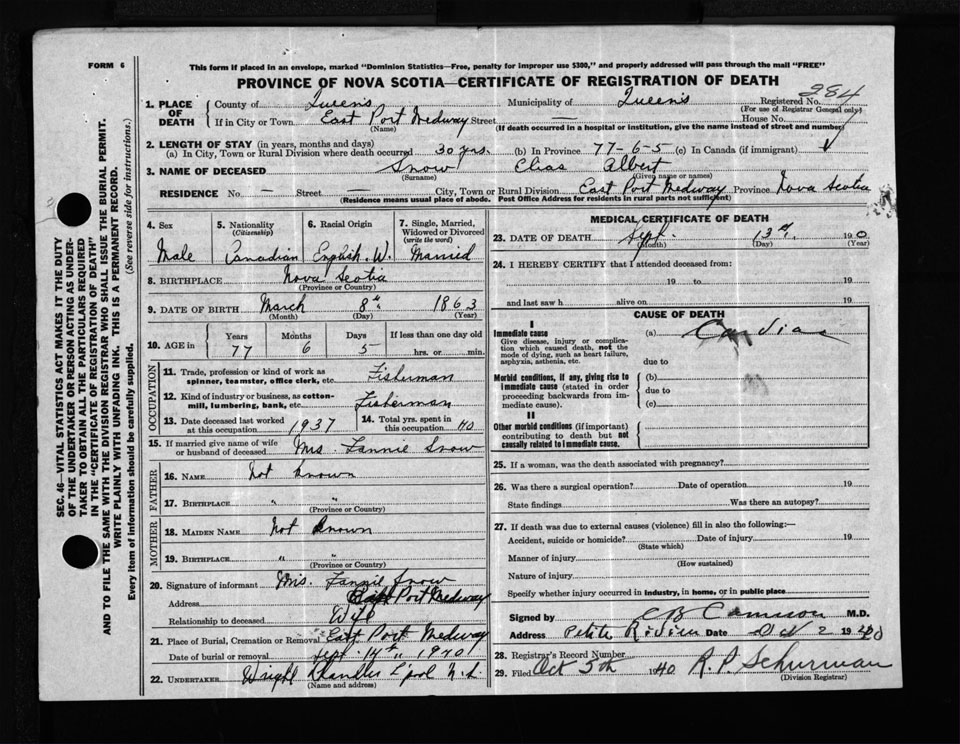 FORM 6
This form if placed in an envelope, marked "Dominion Statistics—Free, penalty for improper use $300," and properly addressed will pass through the mail "FREE"
PROVINCE OF NOVA SCOTIA—CERTIFICATE OF REGISTRATION OF DEATH
384
1. PLACE OF DEATH County of Queens Municipality of Queens Registered No.
(For use of Registrar General only)
If in City or Town East Port Medway Street — House No.
(Name) (If death occurred in a hospital or institution, give the name instead of street and number)
2. LENGTH OF STAY (in years, months and days)
(a) In City, Town or Rural Division where death occurred 30 yrs. (b) In Province 77-6-5 (c) In Canada (if immigrant)
3. NAME OF DECEASED Snow Elias Albert
(Surname) (Given name or names)
RESIDENCE No. — Street — City, Town or Rural Division East Port Medway Province Nova Scotia
(Residence means usual place of abode. Post Office Address for residents in rural parts not sufficient)
4. Sex 5. Nationality (Citizenship) 6. Racial Origin 7. Single, Married, Widowed or Divorced (write the word)
Male Canadian English. W. Married
8. BIRTHPLACE Nova Scotia
(Province or Country)
9. DATE OF BIRTH March 8th 1863
(Month) (Day) (Year)
10. AGE in Years Months Days If less than one day old
77 6 5 hrs. or min.
OCCUPATION
11. Trade, profession or kind of work as spinner, teamster, office clerk, etc. Fisherman
12. Kind of industry or business, as cotton-mill, lumbering, bank, etc. Fisherman
13. Date deceased last worked at this occupation 1937 14. Total yrs. spent in this occupation 40
15. If married give name of wife or husband of deceased Mrs. Fannie Snow
FATHER
16. NAME Not Known
17. BIRTHPLACE " "
(Province or Country)
MOTHER
18. MAIDEN NAME Not Known
19. BIRTHPLACE " "
(Province or Country)
20. Signature of informant Mrs. Fannie Snow
Address East Port Medway
Relationship to deceased Wife
21. Place of Burial, Cremation or Removal East Port Medway
Date of burial or removal Sept. 14th, 1940
22. UNDERTAKER Wright Chandler L'pool N.S.
(Name and address)
MEDICAL CERTIFICATE OF DEATH
23. DATE OF DEATH Sept. 13th. 190
(Month) (Day) (Year)
24. I HEREBY CERTIFY that I attended deceased from:
19 to 19
and last saw h alive on 19
CAUSE OF DEATH
I
Immediate cause (a) Cardiac
Give disease, injury or complication which caused death, not the mode of dying, such as heart failure, asphyxia, asthenia, etc. due to
Morbid conditions, if any, giving rise to immediate cause (stated in order proceeding backwards from immediate cause). (b) due to (c)
II
Other morbid conditions (if important) contributing to death but not causally related to immediate cause.
25. If a woman, was the death associated with pregnancy?
26. Was there a surgical operation? Date of operation 19
State findings Was there an autopsy?
27. If death was due to external causes (violence) fill in also the following:—
Accident, suicide or homicide? Date of injury 19
(State which)
Manner of injury
(How sustained)
Nature of injury
Specify whether injury occurred in industry, in home, or in public place
Signed by M.D.
Address Petite Riviere Date Oct 2 1940
28. Registrar's Record Number
29. Filed Oct 5th 1940 R. P. Schurman
(Division Registrar)
SEC. 46—VITAL STATISTICS ACT. MAKES IT THE DUTY
OF THE UNDERTAKER OR PERSON ACTING AS UNDER-
TAKER TO OBTAIN ALL THE PARTICULARS REQUIRED
IN THE "CERTIFICATE OF REGISTRATION OF DEATH"
AND TO FILE THE SAME WITH THE DIVISION REGISTRAR WHO SHALL ISSUE THE BURIAL PERMIT.
WRITE PLAINLY WITH UNFADING INK. THIS IS A PERMANENT RECORD.
Every item of information should be carefully supplied. (See reverse side for instructions.)